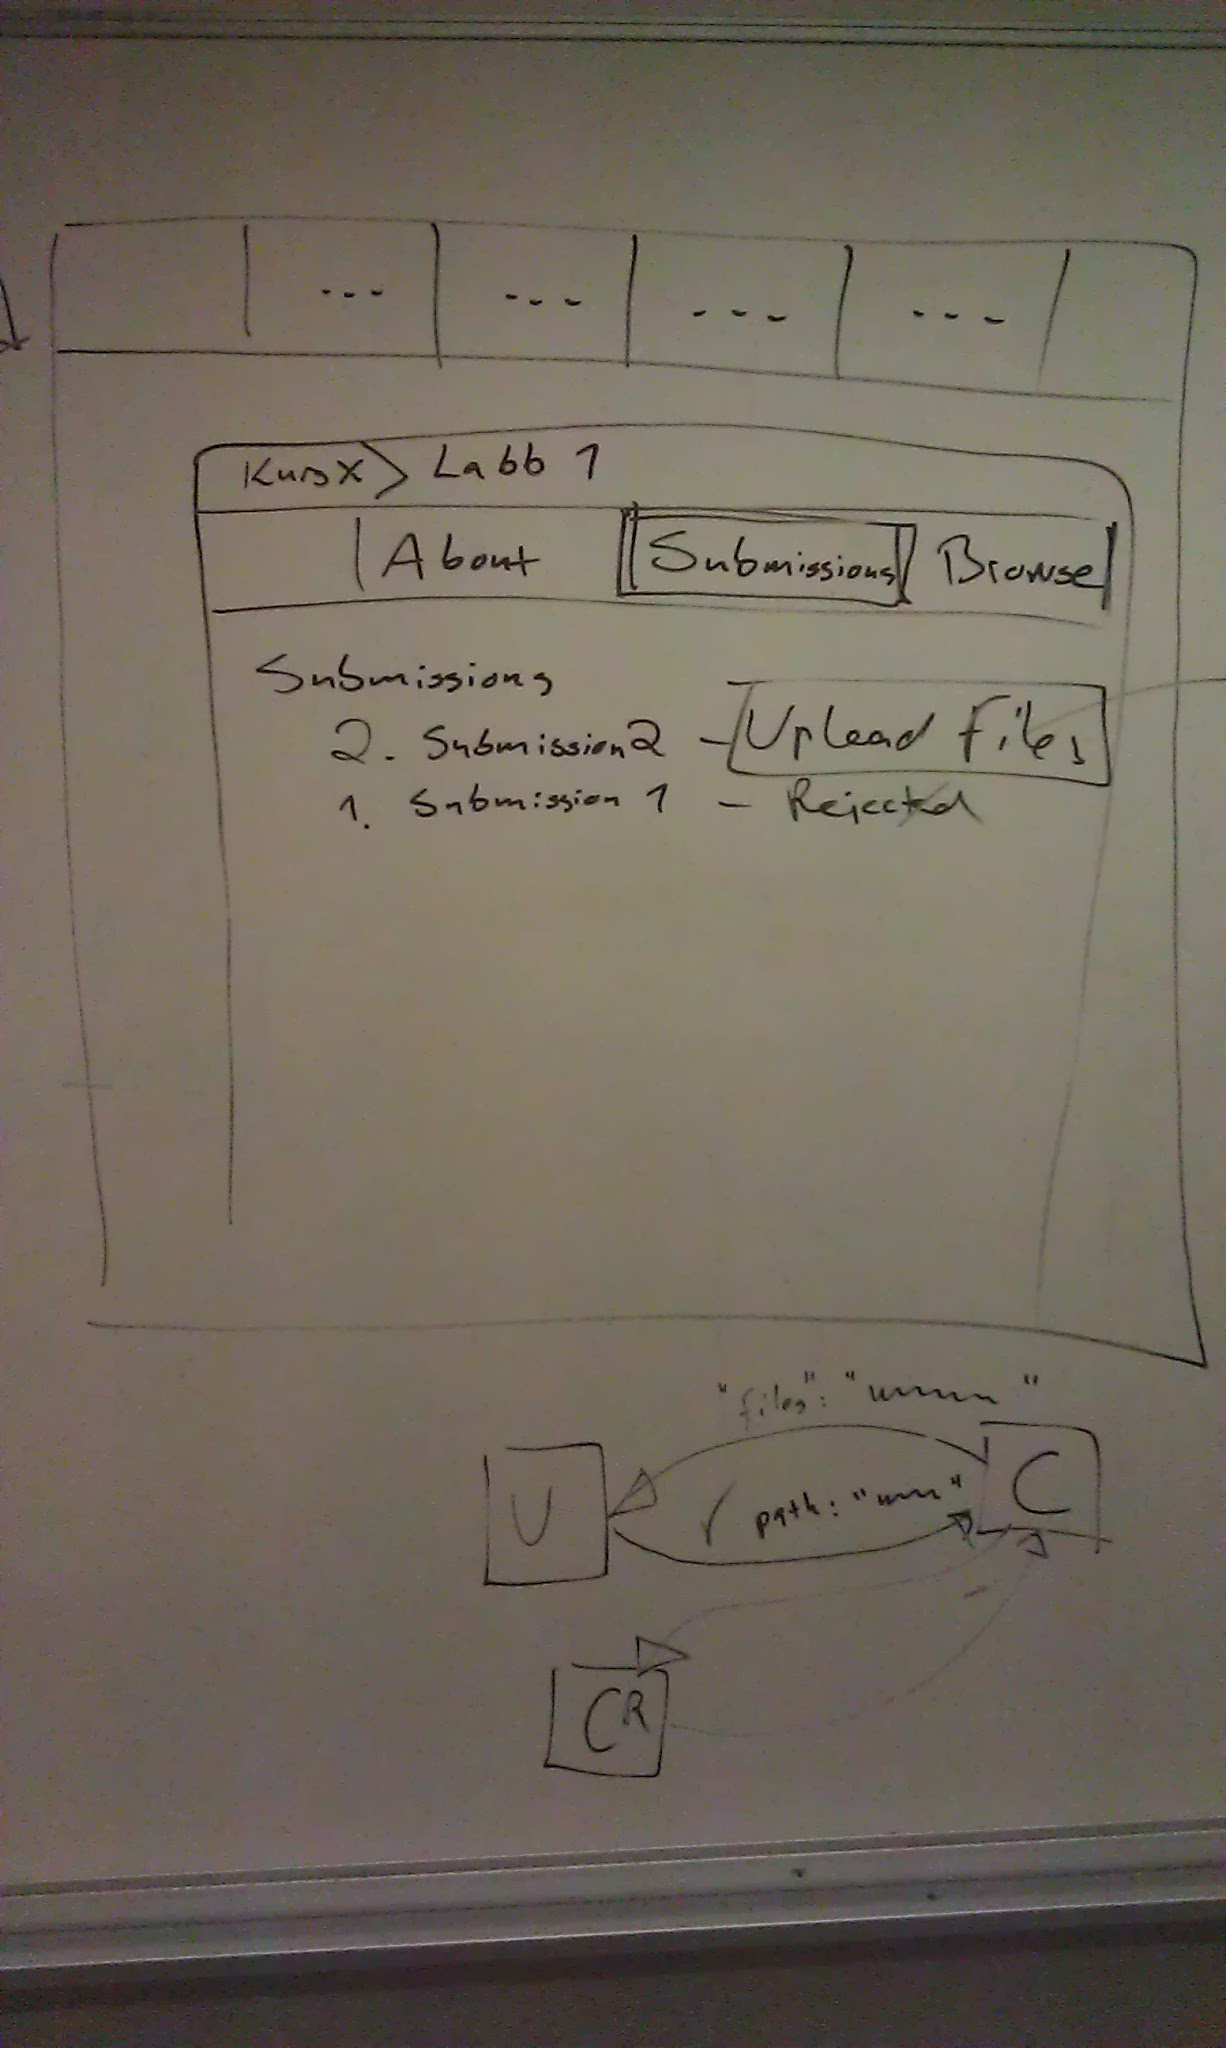 ... ... ... ...
Kurs X > Labb 1
About Submissions Browse
Submissions
2. Submission 2 - Upload Files
1. Submission 1 - Rejected
"files": " "
U path: " " C
CR